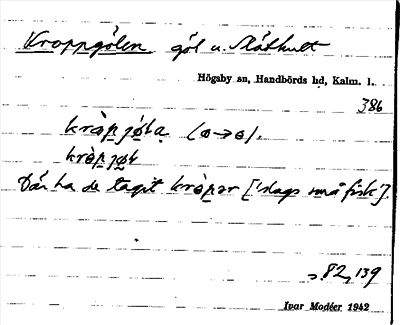 Kroppgölen göl u. Slåthult
Högsby sn, Handbörds hd, Kalm. l.
386
Där ha de tagit kråpər ['slags små fisk'].
s. 82, 139
Ivar Modéer 1942